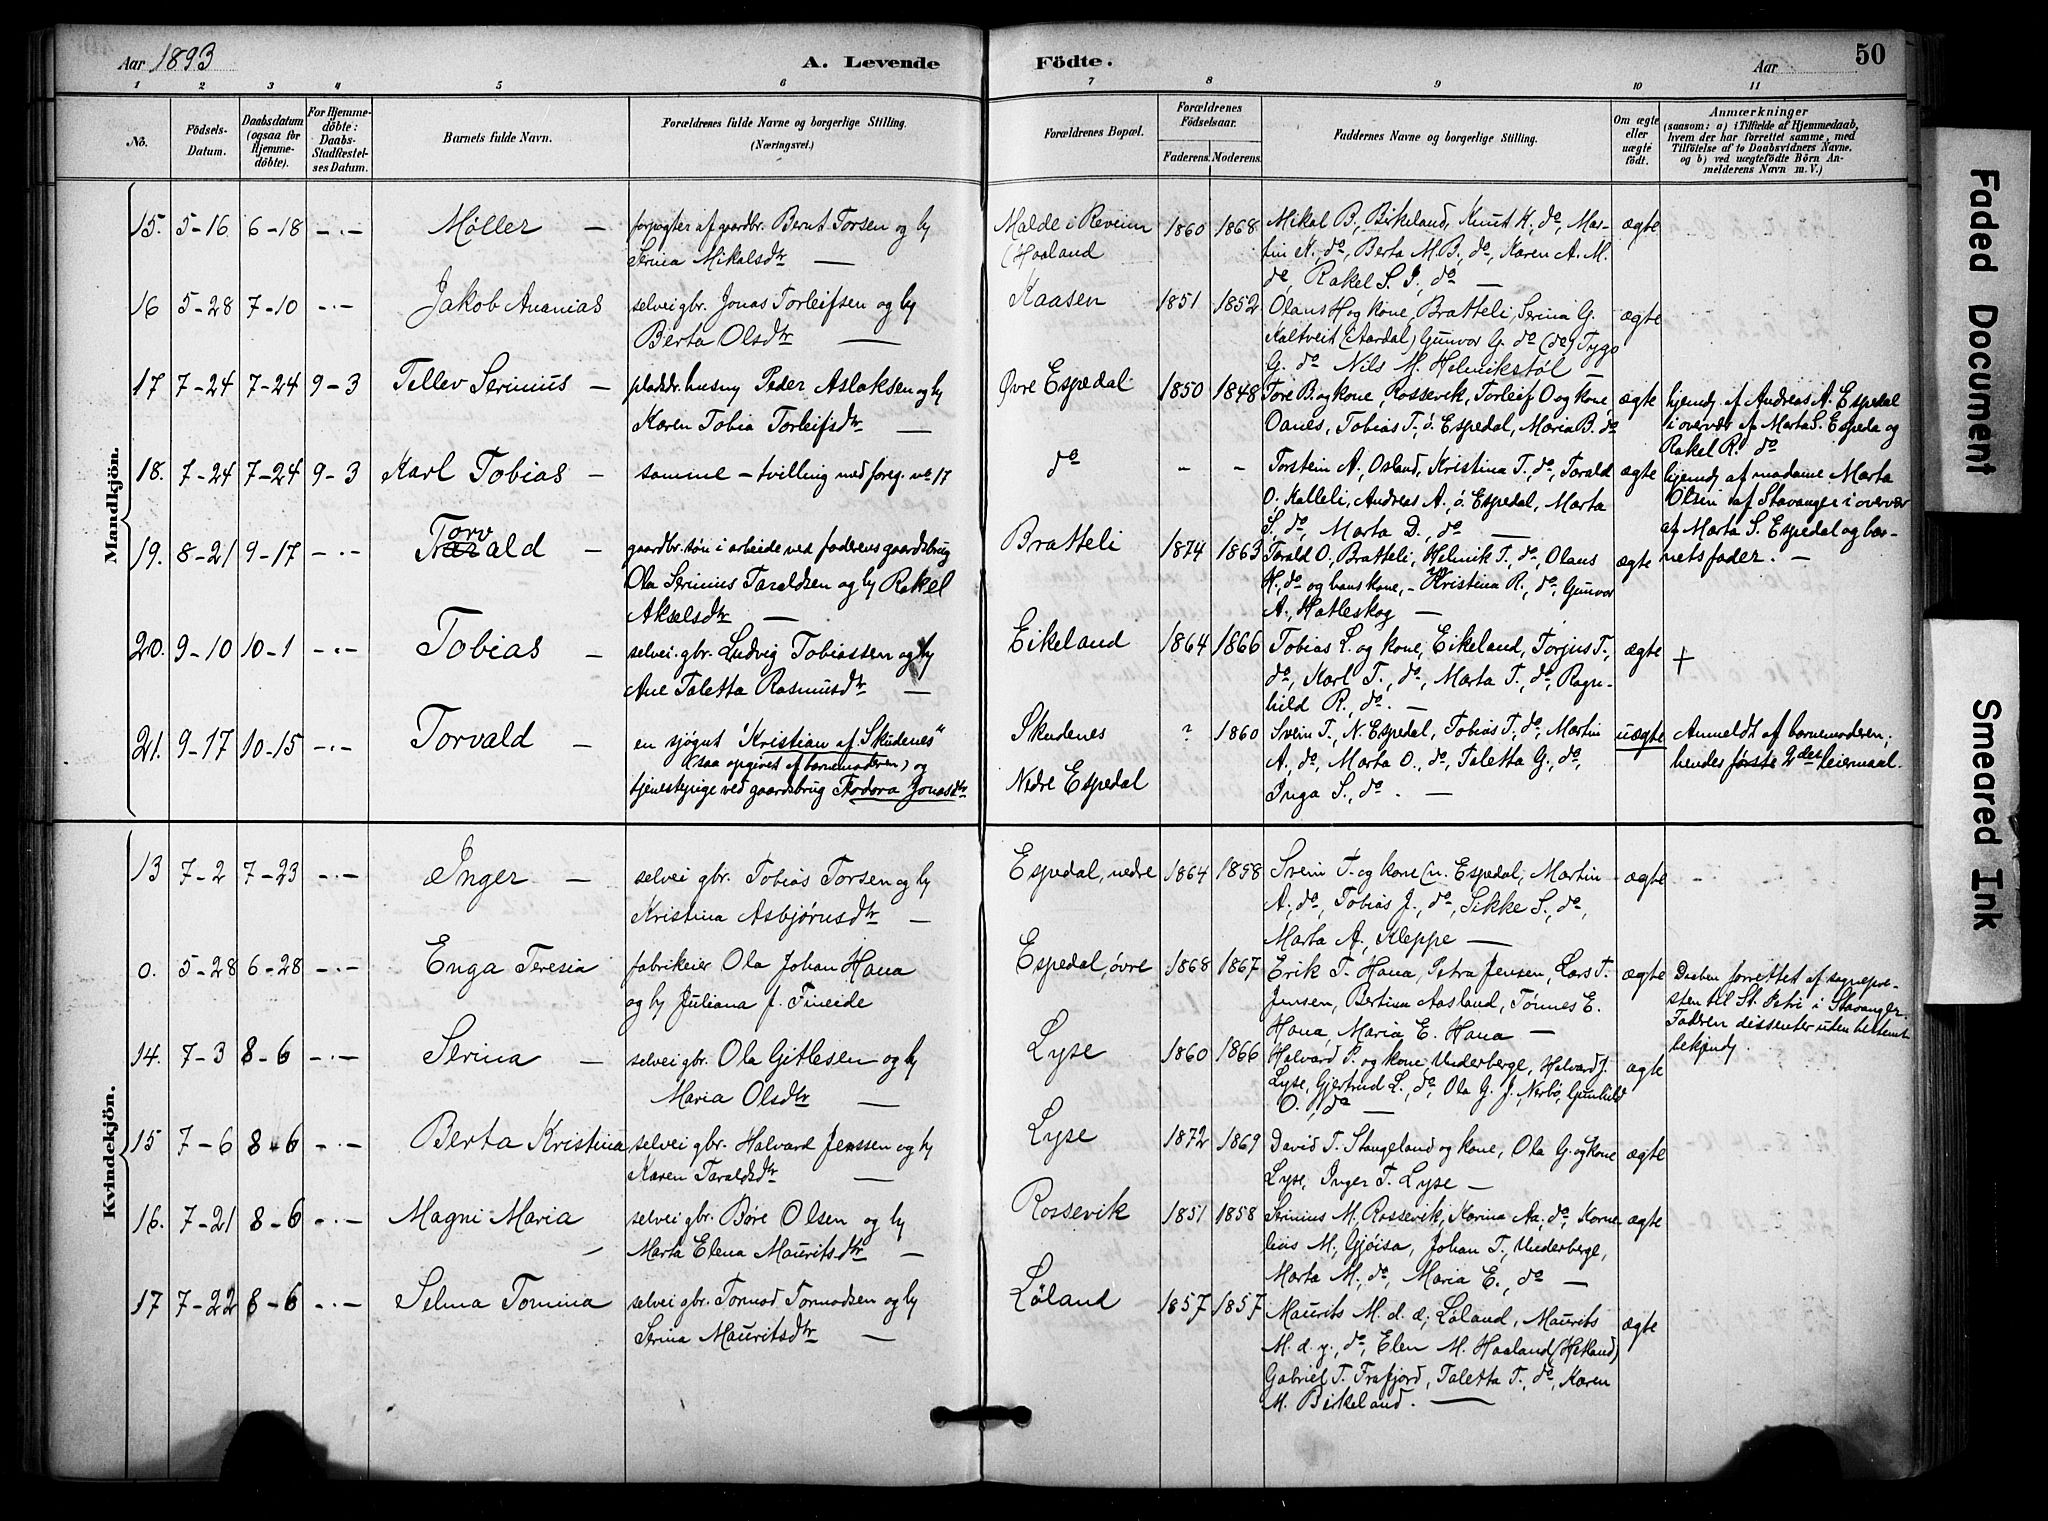 Aar 1893
A. Levende Födte.
Aar
50
1 2 3 4 5 6 7 8 9 10 11
No.
Födsels-Datum.
Daabsdatum (ogsaa for Hjemme-döbte).
For Hjemme-döbte: Daabs-Stadfæstel-ses Datum.
Barnets fulde Navn.
Forældrenes fulde Navne og borgerlige Stilling.
(Næringsvei.)
Forældrenes Bopæl.
Forældrenes Födselsaar.
Faderens. Moderens.
Faddernes Navne og borgerlige Stilling.
Om ægte eller uægte födt.
Anmærkninger
(saasom: a) i Tilfælde af Hjemmedaab,
hvem der har forrettet samme, med
Tilföielse af to Daabsvidners Navne.
og b) ved uægtefödte Börn An-
melderens Navn m. V.)
Mandkjön.
15. 5-16 6-18 -.- Møller — forpagter af gaardbr. Bernt Torsen og hu
Serina Mikalsdtr —
Malde i Reveim
(Haaland
1860 1868
Mikal B., Birkeland, Knut K., do, Mar-
tin K., do, Berta M. B., do, Karen A. M.
do, Rakel S. J., do —
ægte
16 5-28 7-10 -.- Jakob Ananias selveigbr. Jonas Torleifsen og hu
Berta Olsdtr —
Kaasen 1851 1852
Olaus H og kone, Bratteli, Serina G.
Kaltveit (Aardal) Gunvor G. do (do) Tygo
G. do Nils M. Helmikstøl —
ægte
17 7-24 7-24 9-3 Tellev Serinius — pladsbr. husm Peder Aslaksen og hu
Karen Tobia Torleifsdtr —
Øvre Espedal 1850 1848
Tore B. og kone, Rossevik, Torleif O og kone,
Oanes, Tobias T., ö. Espedal, Maria B. do
ægte
hjemdø. af Andreas A. Espedal
i overvær af Marta S. Espeda og
Rakel R. do
18. 7-24 7-24 9-3 Karl Tobias — samme — tvilling med foreg. no 17
do - -
Torstein A., Osland, Kristina T., do, Torald
O. Kalleli, Andreas A., ö. Espedal, Marta
S., do, Marta D., do —
ægte
hjemdø. af madame Marta
Olsen af Stavanger i overvær
af Marta S. Espedal og bar-
nets fader. —
19. 8-21 9-17 -.- Torvald — gaardbr. søn i arbeide ved faderens gaardsbrug
Ola Serinius Taraldsen og hu Rakel
Akselsdtr —
Bratteli 1874 1863
Torald O., Bratteli, Helmik T., do, Olaus
H., do og hans kone, — Kristina R., do, Gunvor
A., Hatleskog —
ægte
20. 9-10 10-1 -.- Tobias — selvei.gbr. Ludvig Tobiassen og hu
Ane Taletta Rasmusdtr —
Eikeland 1864 1866
Tobias L. og kone, Eikeland, Torjus T.,
do, Karl T., do, Marta T., do, Ragn-
hild R., do. —
ægte +
21. 9-17 10-15 -.- Torvald — en sjøgut "Kristian af Skudenes"
(saa opgivet af barnemoderen) og
tjenestepige ved gaardsbrug Todora Jonasdtr
Skudenes
Nedre Espedal
? 1860
Svein T., N. Espedal, Tobias T., do, Martin
A., do, Marta O., do, Taletta G., do,
Inga S., do. —
uægte
Anmeldt af barnemoderen;
hendes første 2det leiermaal.
Kvindekjön.
13 7-2 7-23 -.- Inger — selvei gbr. Tobias Torsen og hu
Kristina Asbjørnsdtr —
Espedal, nedre 1864 1858
Svein T. og kone (n. Espedal, Martin
A., do, Tobias J., do, Sikke S., do,
Marta A., Kleppe —
ægte
0. 5-28 6-28 -.- Enga Teresia fabrikeier Ola Johan Hana
og hu Juliana f. Fineide
Espedal, øvre 1868 1867
Erik T. Hana, Petra Jensen, Lars T.
Jensen, Bertina Aasland, Tönnes E.
Hana, Maria E. Hana —
ægte
Daaben forrettet af sognepre-
sten til St. Petri i Stavanger.
Faderen dissenter uden bestemt
bekjend.
14. 7-3 8-6 -.- Serina — selvei gbr. Ola Gitlesen og hu
Maria Olsdtr —
Lyse 1860 1866
Halvard P. og kone, Underberge, Halvard J.
Lyse, Gjertrud L., do, Ola G. J. Nerbø, Gunhild
O., do —
ægte
15 7-6 8-6 -.- Berta Kristina selvei gbr. Halvard Jenssen og hu
Karen Taraldsdtr —
Lyse 1872 1869
David T. Stangeland og kone, Ola G. og kone
Lyse, Inger T. Lyse —
ægte
16. 7-21 8-6 -.- Magni Maria — selvei gbr. Børe Olsen og hu
Marta Elena Mauritsdtr —
Rossevik 1851 1858
Serinius M. Rossevik, Karina Aa., do, Korne-
lius M., Gjøisa, Johan T., Underberge,
Marta M., do, Maria E., do —
ægte
17 7-22 8-6 -.- Selma Tomina selvei gbr. Tormod Tormodsen og hu
Serina Mauritsdtr —
Løland 1857 1857
Maurits M. d. e; Løland, Maurits
M. d. y., do, Elen M. Haaland (Hetland)
Gabriel T. Frafjord, Taletta T., do, Karen
M. Birkeland. —
ægte
Faded Document
Smeared Ink